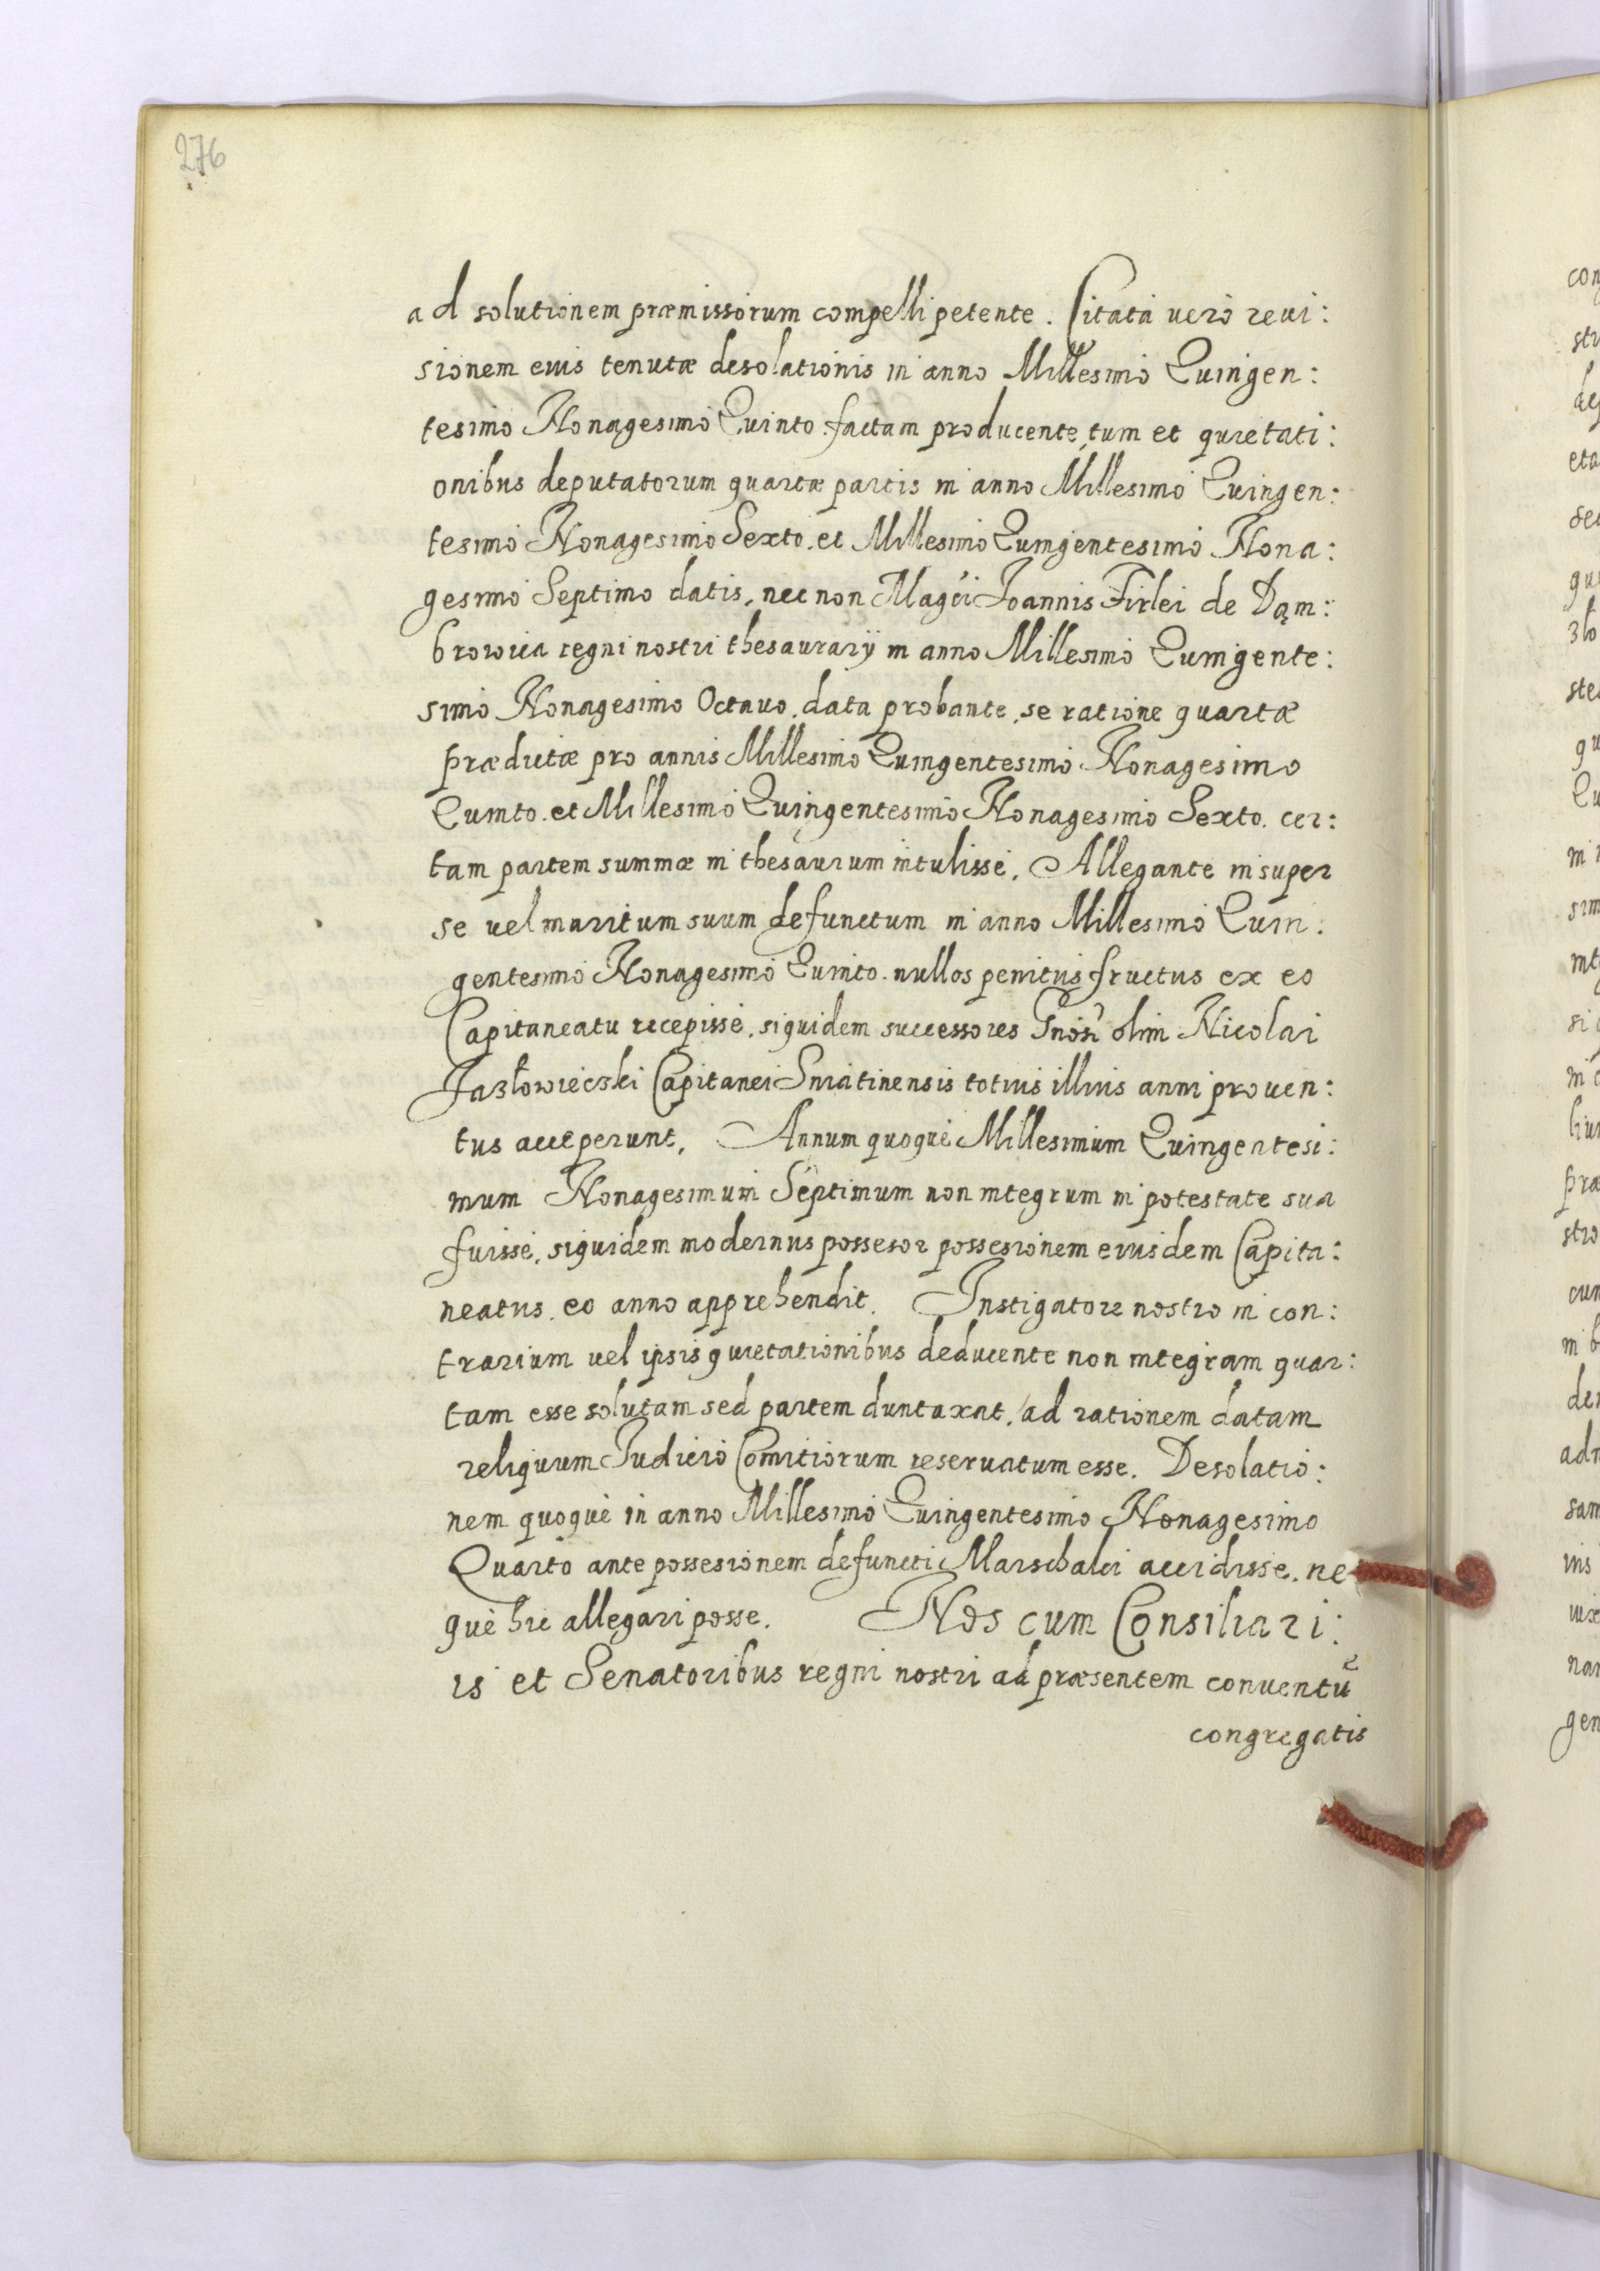 276
ad solutionem præmissorum compelli petente. Citata verò revi:
sionem eius tenutæ desolationis in anno Millesimo Quingen:
tesimo Nonagesimo Quinto factam producente, tum et quietati:
onibus deputatorum quartæ partis in anno Millesimo Quingen:
tesimo Nonagesimo Sexto. et Millesimo Quingentesimo Nona:
gesimo Septimo datis, nec non Magci Joannis Firlei de Dąm:
browica regni nostri thesaurarÿ in anno Millesimo Quingente:
simo Nonagesimo Octavo, data probante, se ratione quartæ
prædictæ pro annis Millesimo Quingentesimo Nonagesimo
Quinto. et Millesimo Quingentesimo Nonagesimo Sexto. cer:
tam partem summæ in thesaurum intulisse, Allegante insuper
se vel maritum suum defunctum in anno Millesimo Quin:
gentesimo Nonagesimo Quinto. nullos penitus fructus ex eo
Capitaneatu recepisse, siquidem successores Gnosi olim Nicolai
Jazłowieczki Capitanei Sniatinensis totius illius anni proven:
tus acceperunt, Annum quoque Millesimum Quingentesi:
mum Nonagesimum Septimum non integrum in potestate sua
fuisse, siquidem modernus possesor possesionem eiusdem Capita:
neatus. eo anno apprehendit. Instigatore nostro in con:
trarium vel ipsis quietationibus deducente non integram quar:
tam esse solutam sed partem duntaxat, ad rationem datam
reliquum Judicio Comitiorum reservatum esse. Desolatio:
nem quoquè in anno Millesimo Quingentesimo Nonagesimo
Quarto ante possesionem defuncti Marschalci accidisse. ne
què hic allegari posse. Nos cum Consiliari:
is et Senatoribus regni nostri ad præsentem conventũ
congregatis